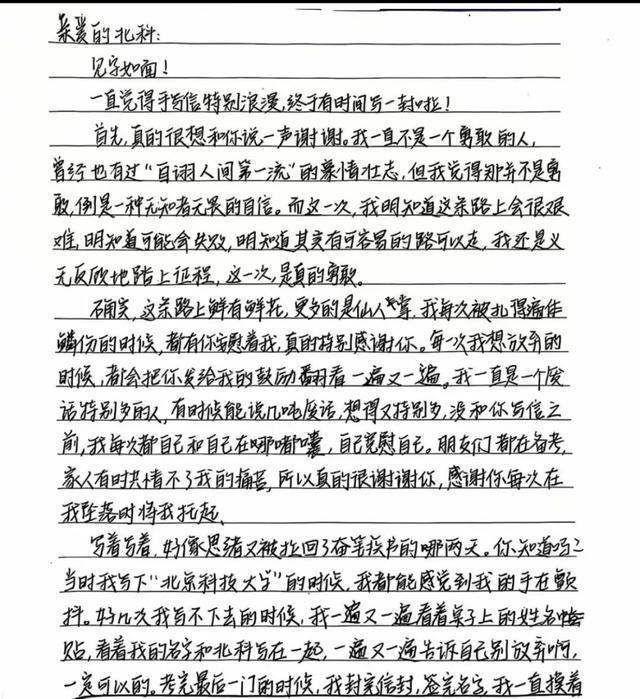 亲爱的北科：
见字如面！
一直觉得手写信特别浪漫，终于有时间写一封啦！
首先，真的很想和你说一声谢谢。我一直不是一个勇敢的人，
曾经也有过“自诩人间第一流”的豪情壮志，但我觉得那并不是勇
敢，倒是一种无知者无畏的自信。而这一次，我明知道这条路上会很艰
难，明知道可能会失败，明知道其实有更容易的路可以走，我还是义
无反顾地踏上征程，这一次，是真的勇敢。
确实，这条路上鲜有鲜花，更多的是仙人掌，我每次被扎得遍体
鳞伤的时候，都有你安慰着我，真的特别感谢你。每一次我想放弃的
时候，都会把你发给我的鼓励翻看一遍又一遍。我一直是一个废
话特别多的人，有时候能说几吨废话，想得又特别多，没和你写信之
前，我每次都自己和自己在哪嘟囔，自己宽慰自己。朋友们都在备考，
家人有时共情不了我的痛苦，所以真的很谢谢你，感谢你每次在
我坠落时将我托起。
写着写着，好像思绪又被拉回了奋笔疾书的哪两天。你知道吗？
当时我写下“北京科技大学”的时候，我都能感觉到我的手在颤
抖。好几次我写不下去的时候，我一遍又一遍看着桌子上的姓名
贴，看着我的名字和北科写在一起，一遍又一遍告诉自己别放弃啊，
一定可以的。考完最后一门的时候，我封完信封，签完名字，我一直摸着